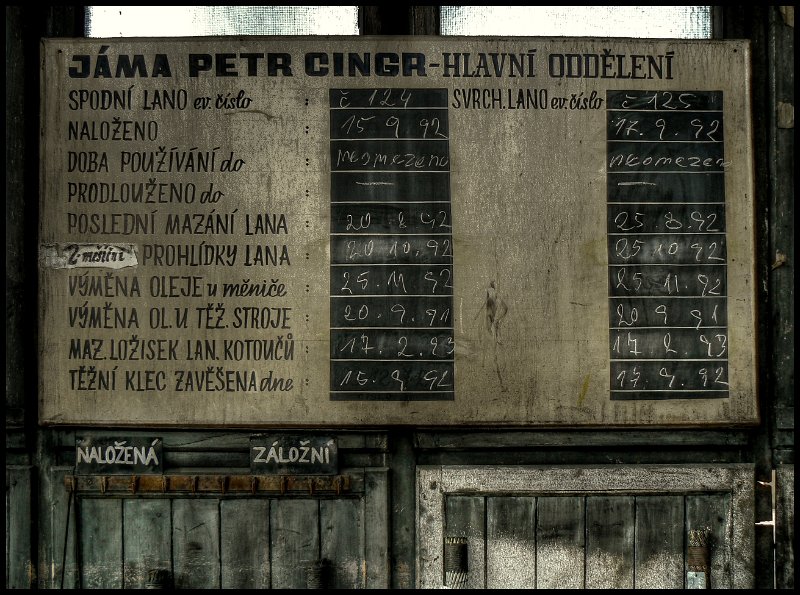 JÁMA PETR CINGR-HLAVNÍ ODDĚLENÍ
SPODNÍ LANO ev. číslo : č 124 SVRCH. LANO ev. číslo č 125
NALOŽENO : 15 9 92 17. 9. 92
DOBA POUŽÍVÁNÍ do : neomezeno neomezen
PRODLOUŽENO do : — —
POSLEDNÍ MAZÁNÍ LANA : 20. 8. 92 25. 8. 92
2-měsíční PROHLÍDKY LANA : 20 10. 92 25. 10 92
VÝMĚNA OLEJE u měniče : 25. 11 92 25. 11. 92
VÝMĚNA OL. U TĚŽ. STROJE : 20. 9. 91 20 9 91
MAZ. LOŽISEK LAN. KOTOUČŮ : 17. 2. 93 17. 2. 93
TĚŽNÍ KLEC ZAVĚŠENA dne : 15. 9. 92 17. 9. 92
NALOŽENÁ ZÁLOŽNÍ